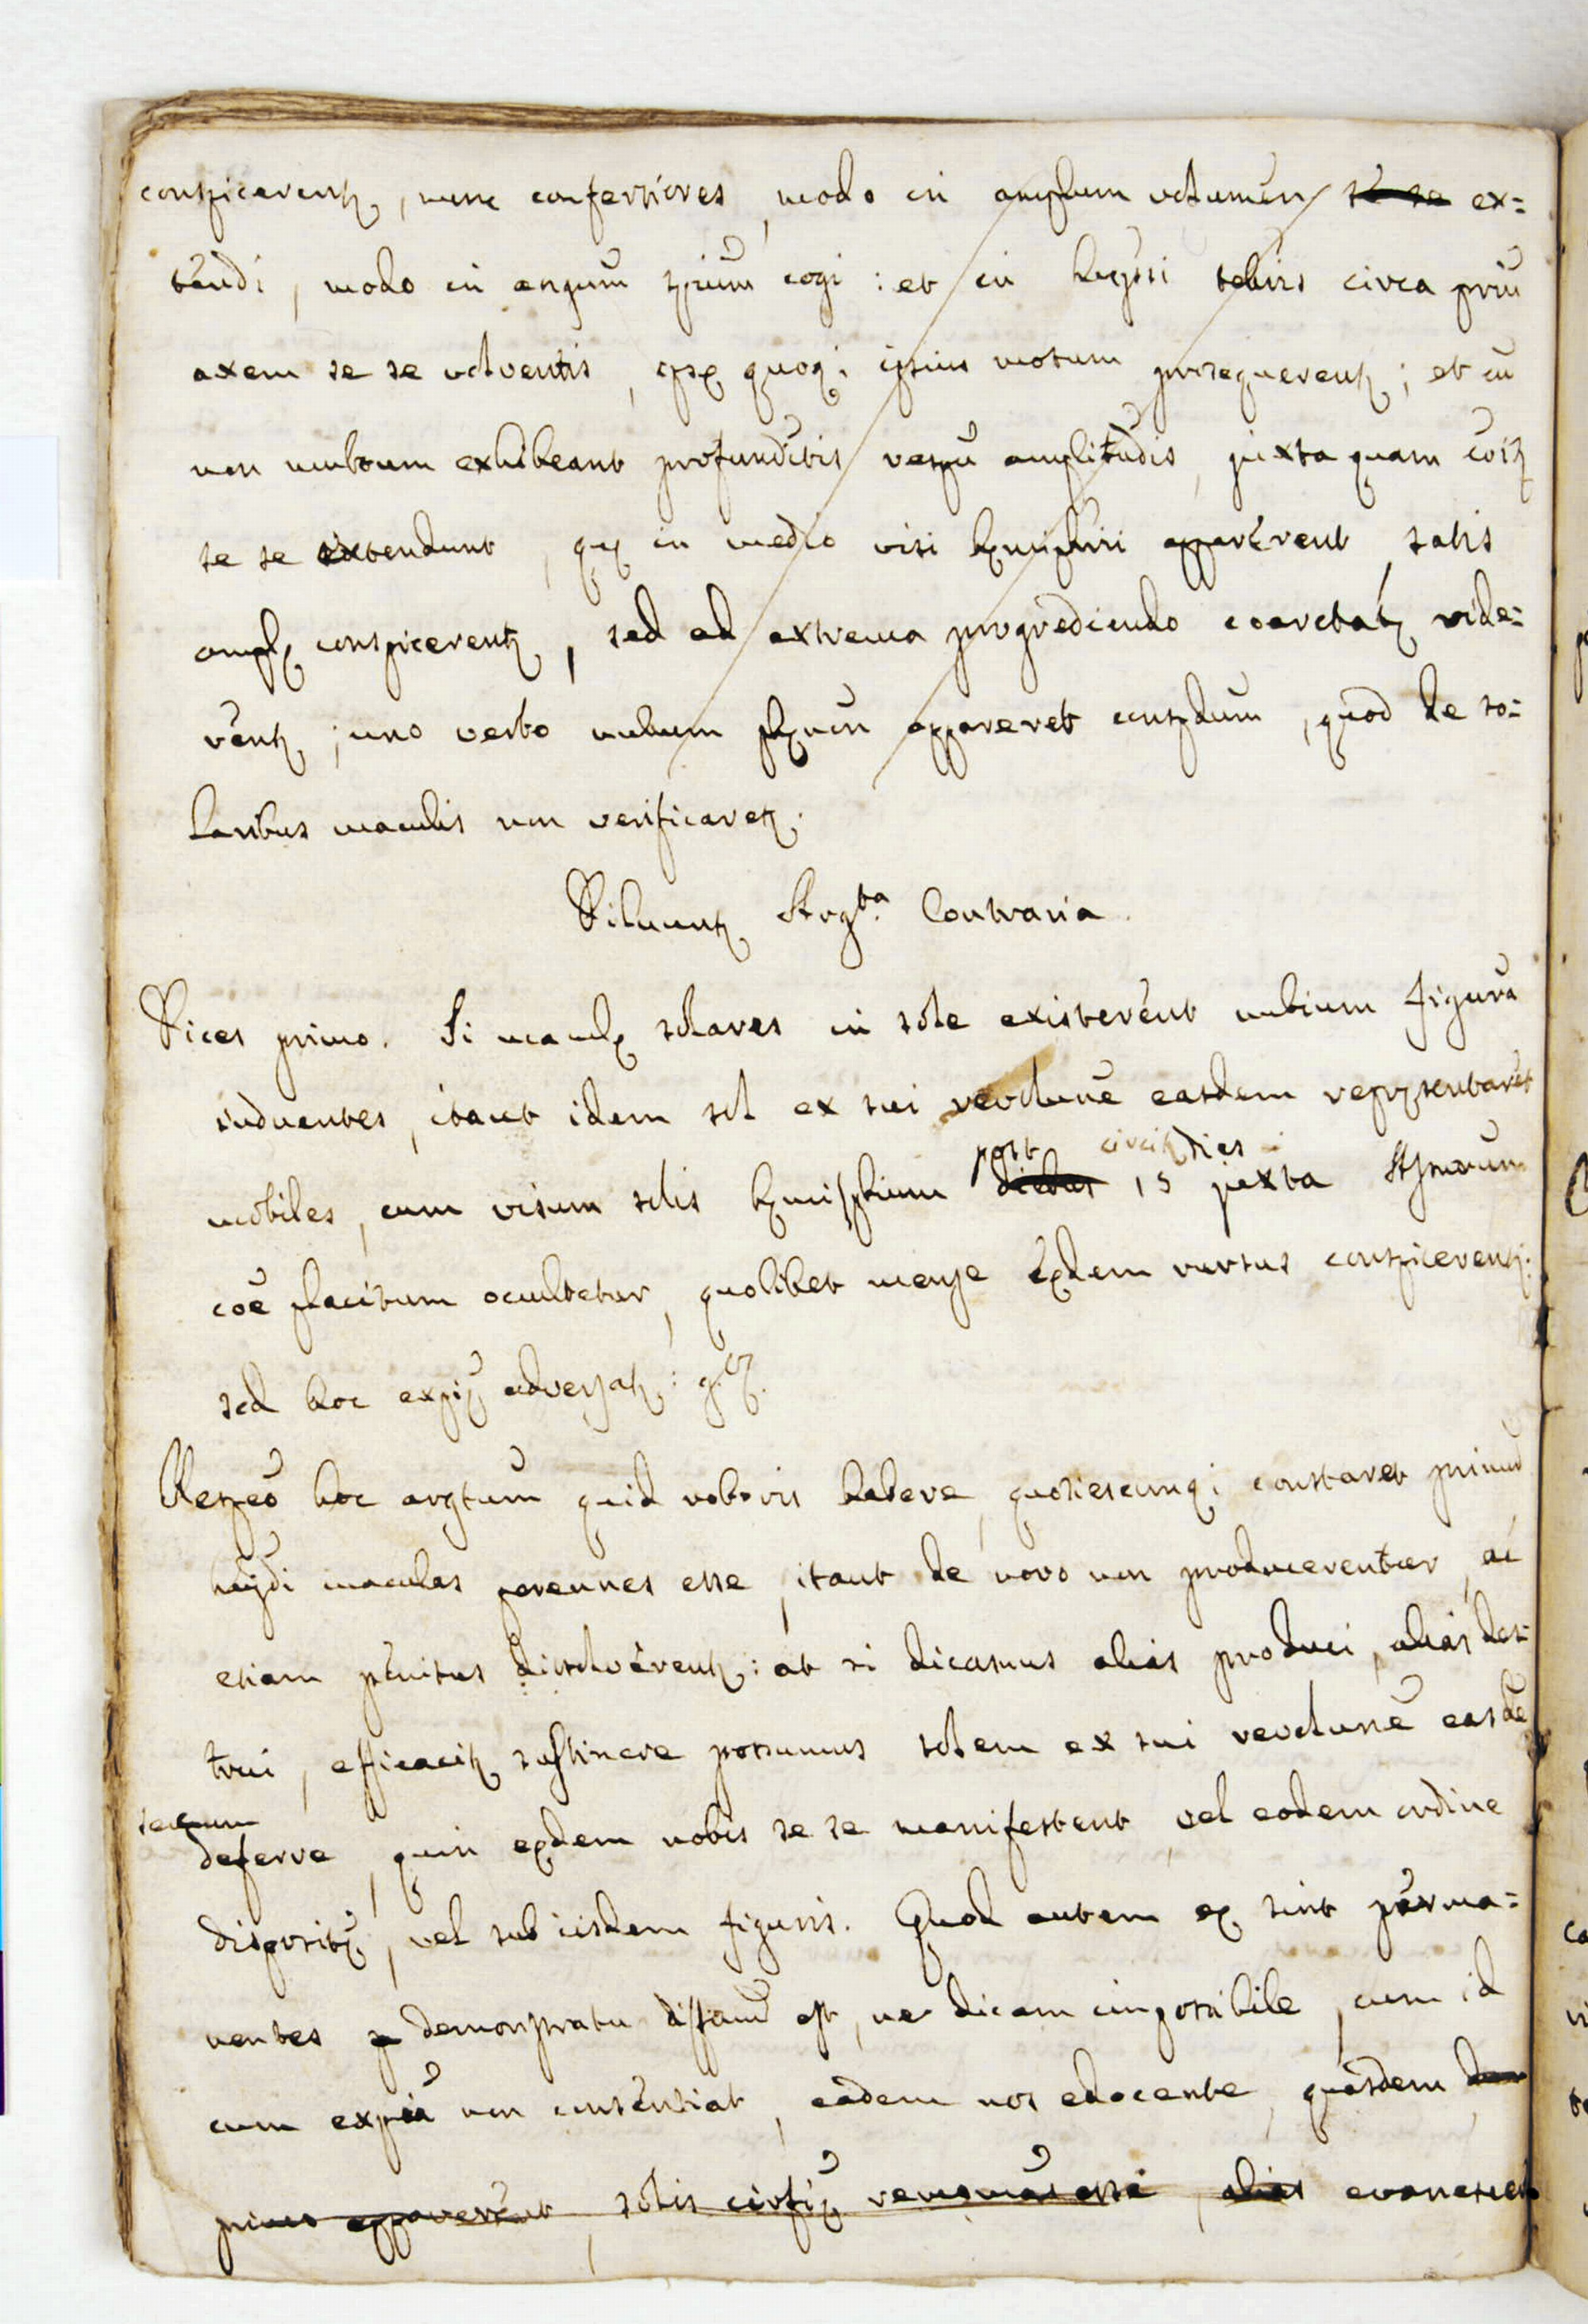 conspicerentʒ, nunc confertiores, modo in amplum volumen se se ex=
tendi, modo in angūm spiūm cogi: et in hujssi telluris circa priū
axem se se volventis, ipsę quoq; ipsius motum prosequerentʒ; et cū
non multum exhibeant profundītis respū amplitudis, juxta quam cōiʒ
se se extendunt, quę in medio visi hęmispherii apparerent, satis
amplę conspicerentʒ, sed ad extrema progrediendo coarctatę vide=
rentʒ; uno verbo nullum phęnōn appareret consydūm, quod de so=
laribus maculis non verificaretʒ.
Diluuntʒ Argta. Contraria.
Dices primo. Si maculę solares in sole existerent nubium figurā
induentes, itaut idem sol ex sui revolunē easdem repręsentaret
mobiles, cum visum solis hęmispherium diebus post circiʒ dies 15 juxta Astrorum
coē placitum occultetur, quolibet mense ęędem rursus conspicerentʒ:
sed hoc expię adversatʒ: g. &.
Respeō hoc argtum quid roboris habere, quotiescunq; constaret primū
hujdi maculas perennes esse, itaut de novo non producerentur, ac
etiam penitus dissolverentʒ: at si dicamus alias produci, alias des=
trui, efficaciʒ sustinere possumus solem ex sui revolunē easdē
secum
deferre, quin eędem nobis se se manifestent, vel eodem ordine
dispositę, vel sub iisdem figuris. Quod autem eę sint perma=
nentes demonstratu diffiam est, ne dicam impossibile, cum id
cum expiā non consentiat, eadem nos edocente, quasdem
primo apparerent, solis evanescere